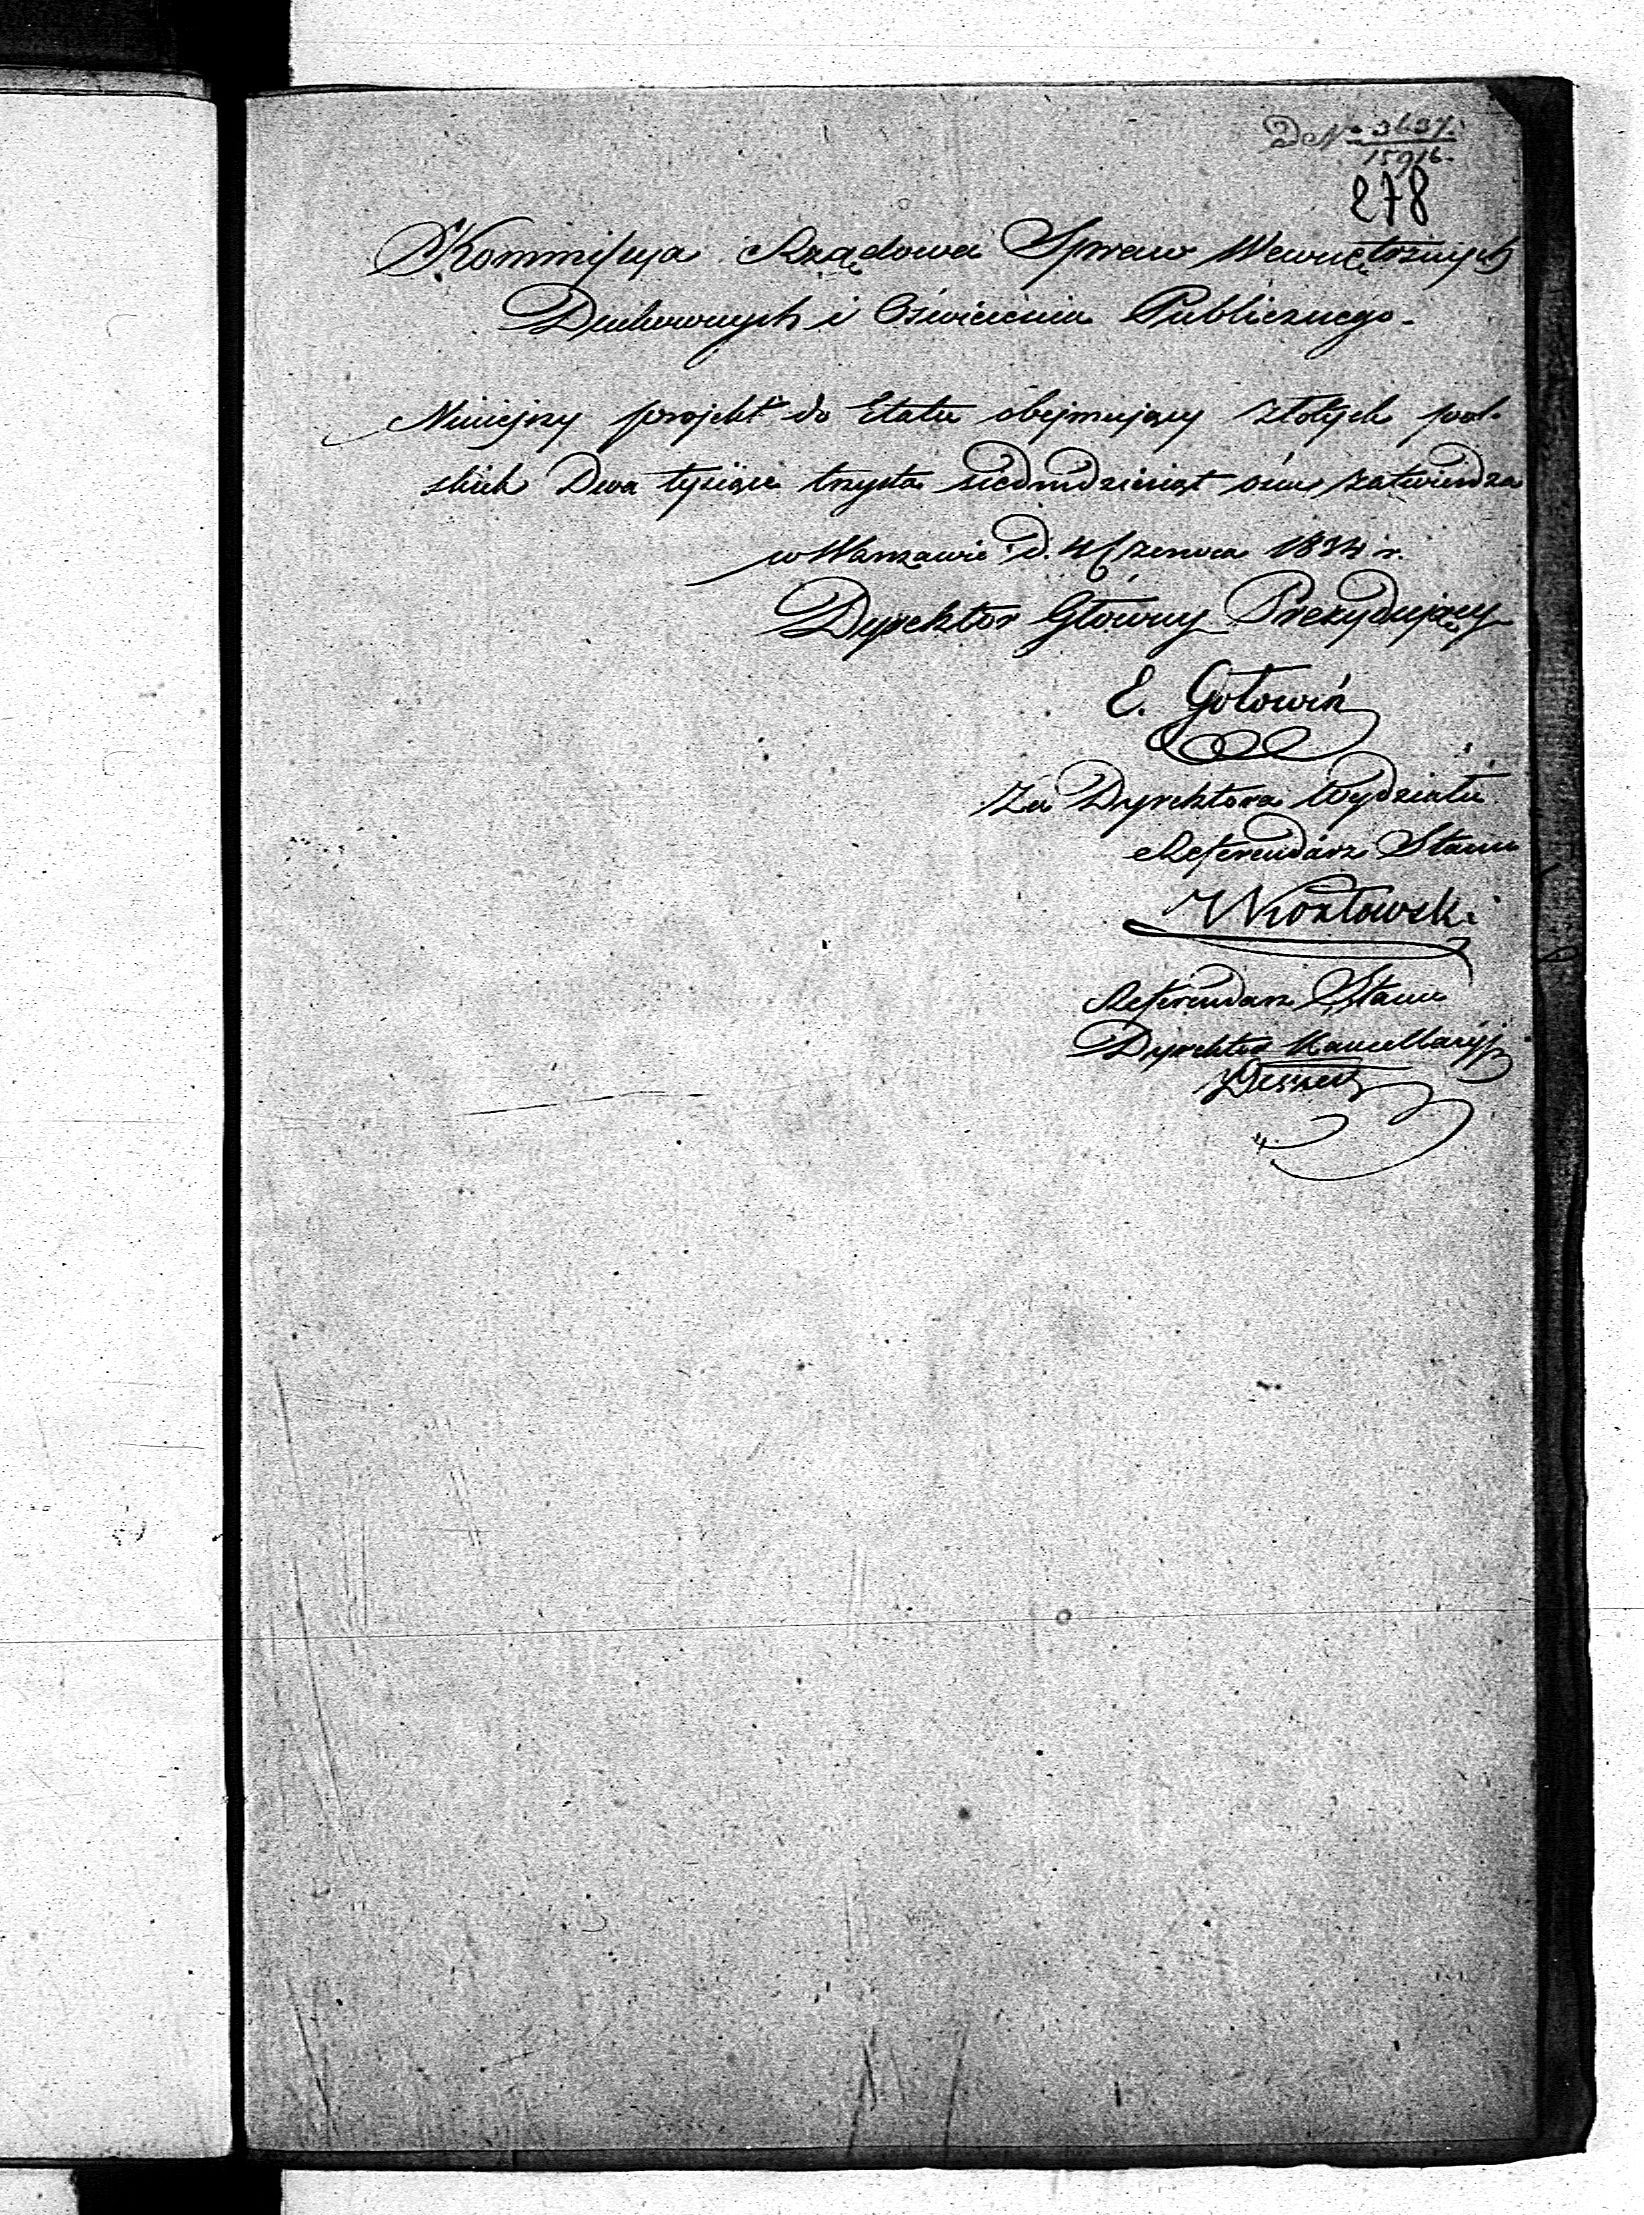 De No 3637.
15916.
278
Kommissya Rządowa Spraw Wewnętrznych
Duchownych i Oświecenia Publicznego.
Niniejszy projekt do Etatu obejmujący złotych pol-
skich Dwa tysiące trzysta siedmdziesiąt ośm zatwierdza
w Warszawie d. 4 Czerwca 1834 r.
Dyrektor Główny Prezydujący
E. Gołowin
Za Dyrektora Wydziału
Referendarz Stanu
Kozłowski
Referendarz Stanu
Dyrektor Kancellaryi